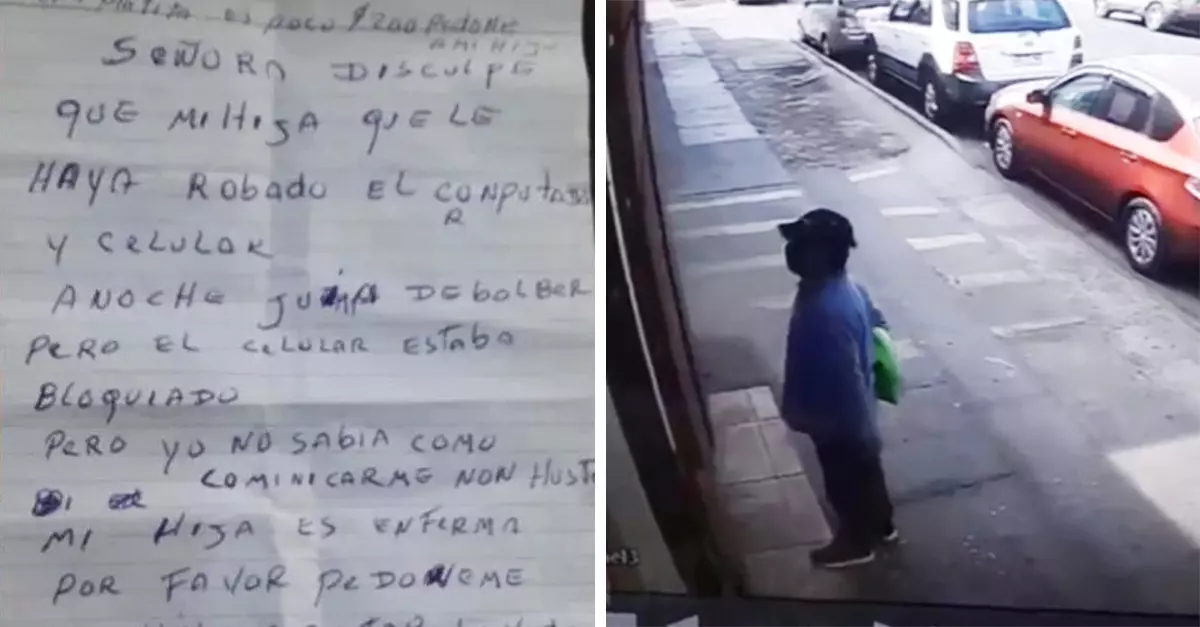 es poco $200 Pedone
A MI HIJO
SEÑORA DISCULPE
QUE MI HIJA QUE LE
HAYA Robado EL COMPUTADO
R
Y CELULAR
ANOCHE DEBOLBER
PERO EL CELULAR ESTABA
BLOQUIADO
PERO YO NO SABIA COMO
COMINICARME NON HUSTE
MI HIJA ES ENFERMA
POR FAVOR PEDONEME